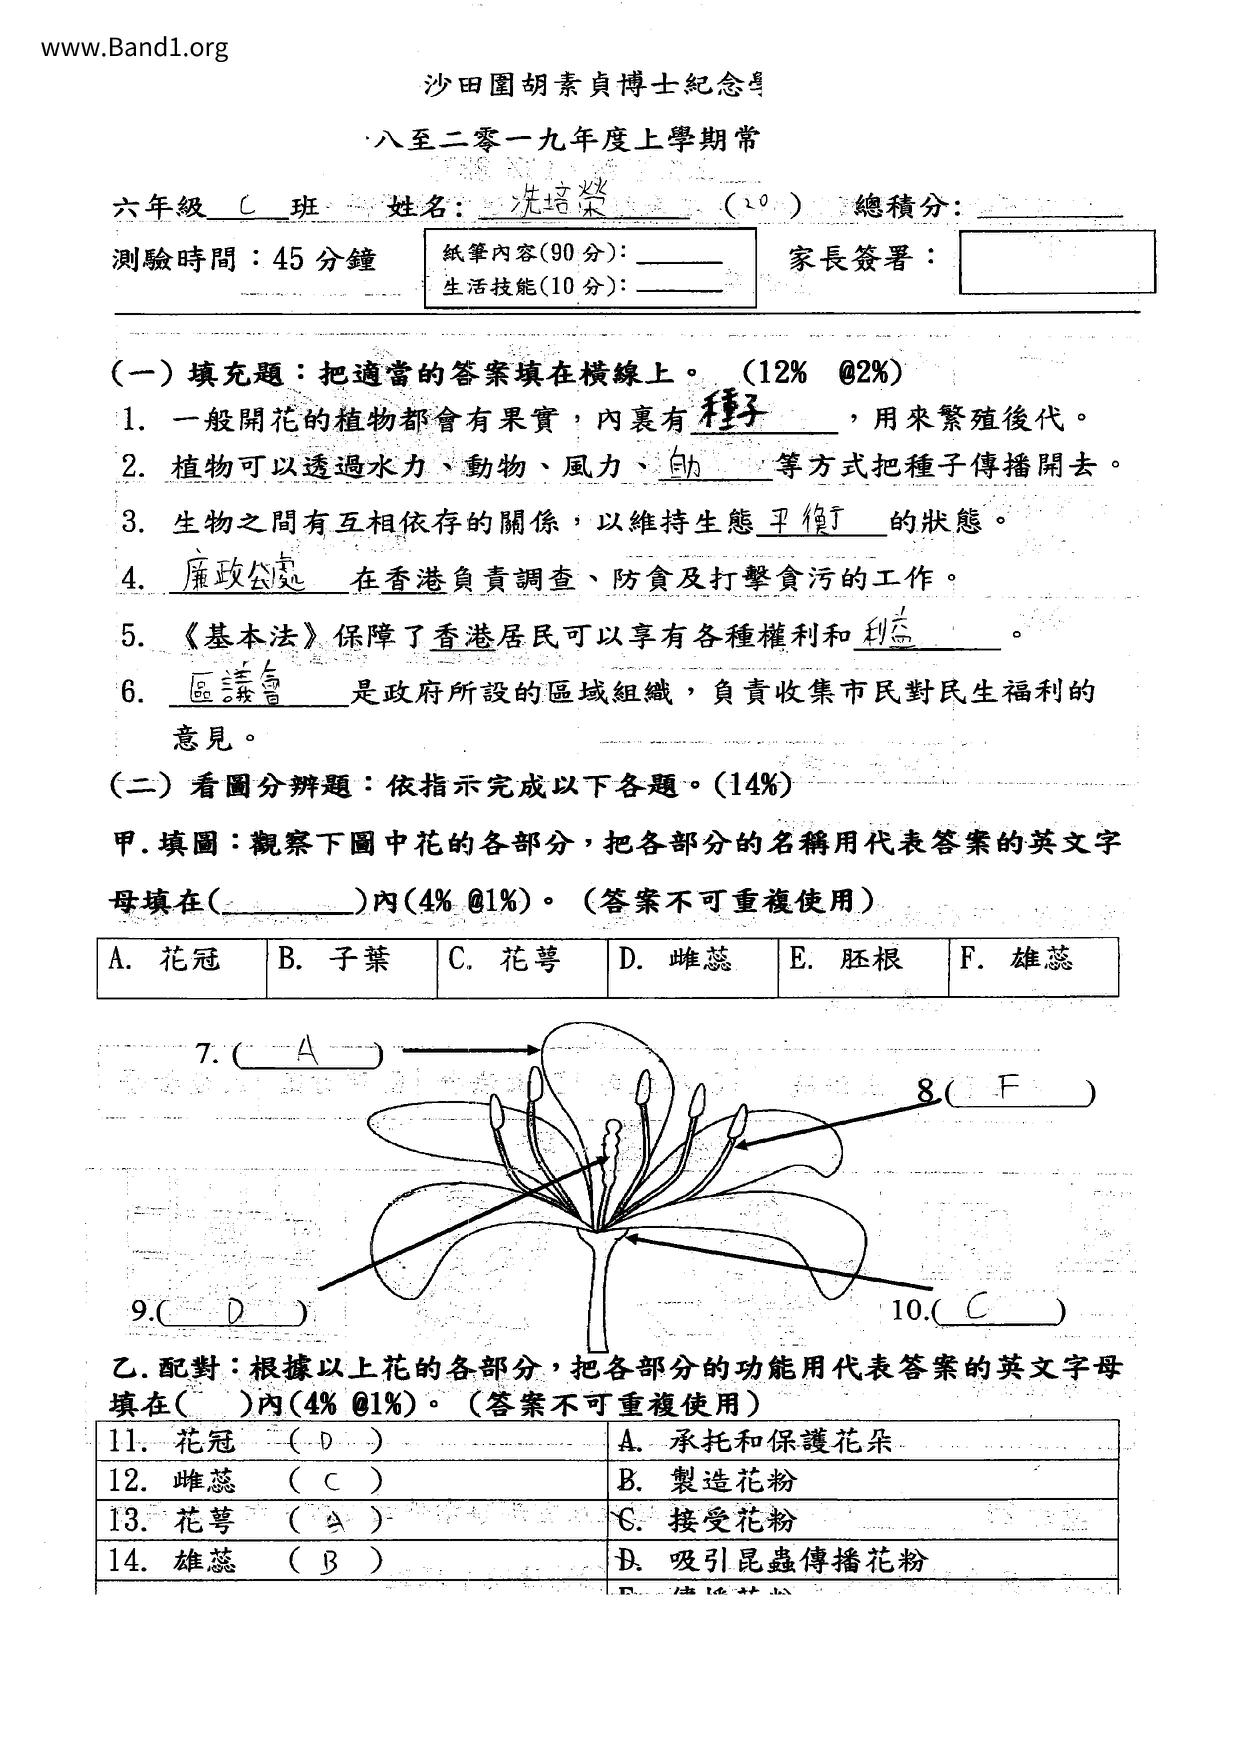 www.Band1.org
沙田圍胡素貞博士紀念
八至二零一九年度上學期常
六年級 C 班 姓名: 冼培榮 (20) 總積分:
測驗時間：45 分鐘 紙筆內容(90 分): 家長簽署：
生活技能(10 分):
(一) 填充題：把適當的答案填在橫線上。 (12% @2%)
1. 一般開花的植物都會有果實，內裏有 種子 ，用來繁殖後代。
2. 植物可以透過水力、動物、風力、 自力 等方式把種子傳播開去。
3. 生物之間有互相依存的關係，以維持生態 平衡 的狀態。
4. 廉政公處 在香港負責調查、防貪及打擊貪污的工作。
5. 《基本法》保障了香港居民可以享有各種權利和 利益 。
6. 區議會 是政府所設的區域組織，負責收集市民對民生福利的
意見。
(二) 看圖分辨題：依指示完成以下各題。(14%)
甲.填圖：觀察下圖中花的各部分，把各部分的名稱用代表答案的英文字
母填在( )內(4% @1%)。 (答案不可重複使用)
A. 花冠 B. 子葉 C. 花萼 D. 雌蕊 E. 胚根 F. 雄蕊
7. ( A )
8 ( F )
9.( D ) 10.( C )
乙.配對：根據以上花的各部分，把各部分的功能用代表答案的英文字母
填在( )內(4% @1%)。 (答案不可重複使用)
11. 花冠 ( D ) A. 承托和保護花朵
12. 雌蕊 ( C ) B. 製造花粉
13. 花萼 ( A ) C. 接受花粉
14. 雄蕊 ( B ) D. 吸引昆蟲傳播花粉